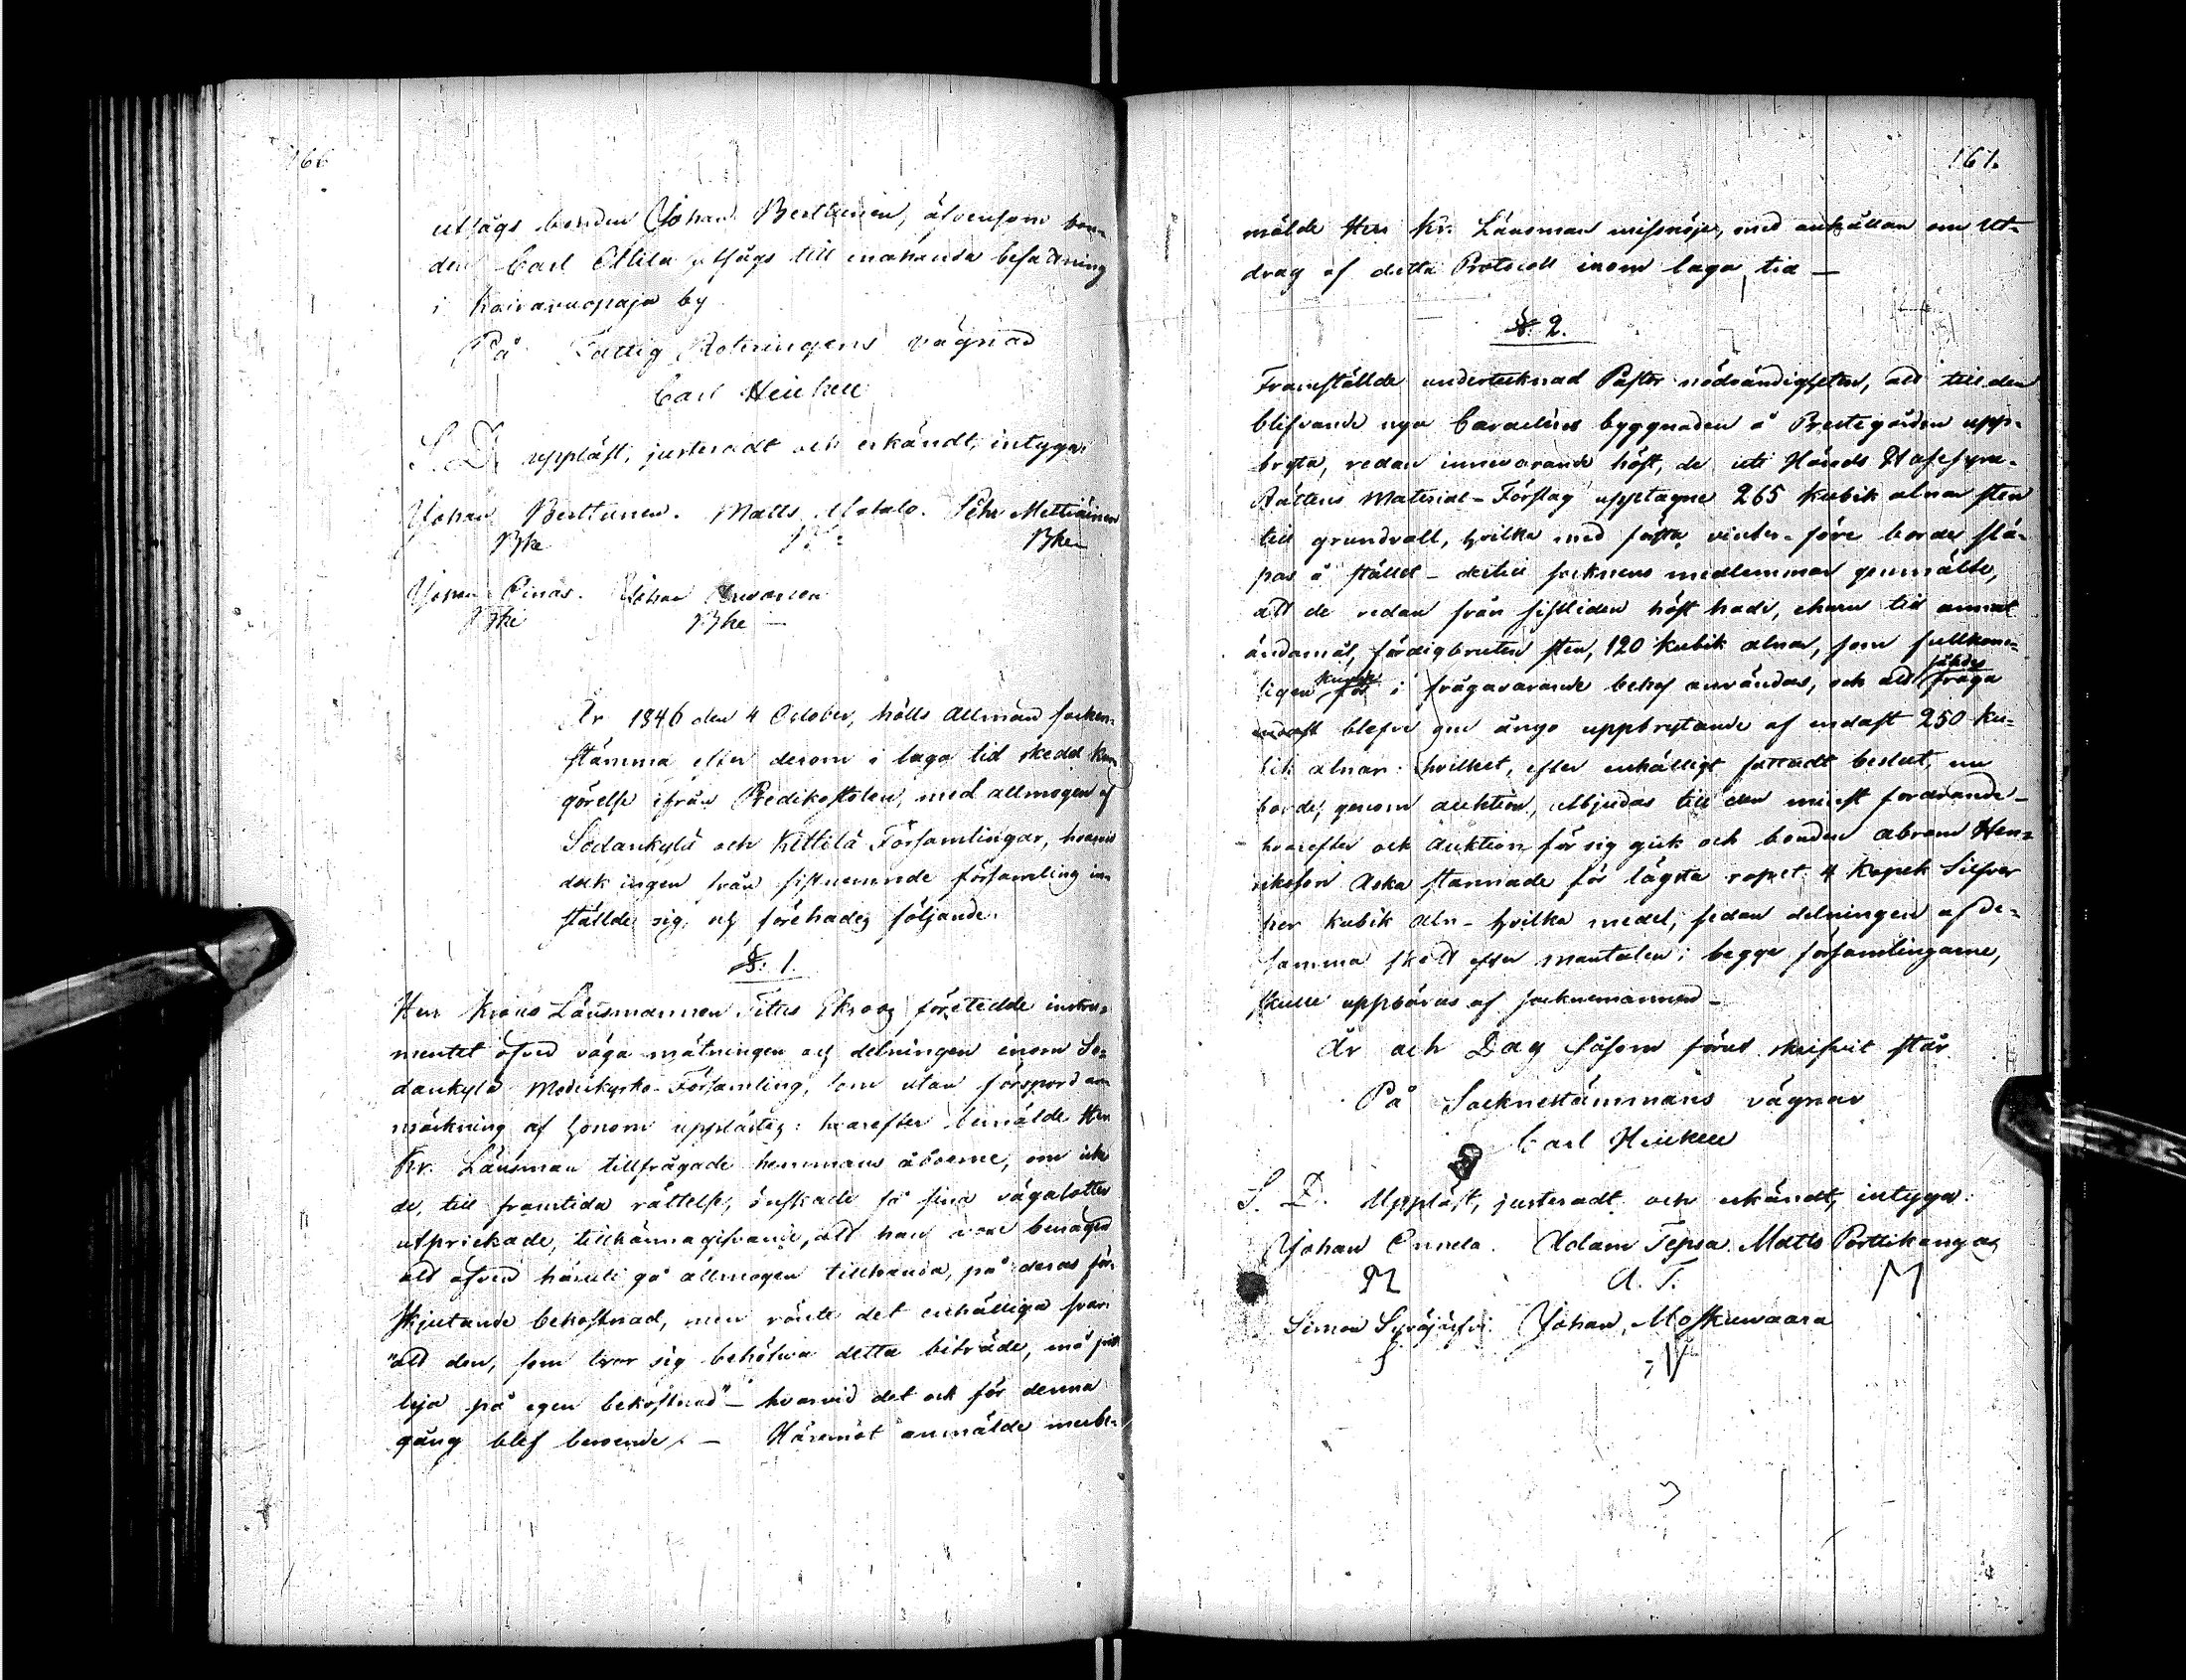 166
utsågs bonden Johan Berttunen, äfvensom bon-
den Carl Ollila utsågs till enahanda befattning
i Kairavuopaja by
På Fattig Roteringens vägnar
Carl Heickell
S. D. uppläst, justeradt och erkändt, intyga:
Johan Berttunen. Matts Petter Mattiainen
Bke Bke
Johan Johan
Bke Bke
År 1846 den 4 October, hölls Allmän socken-
stämma efter derom i laga tid skedd kun-
görelse ifrån Predikostolen, med allmogen af
Sodankylä och Kittilä Församlingar, hvarvid
dock ingen från sistnemnde församling in-
ställde sig, och förehades följande.
§. 1.
Herr Krono Länsmannen Titus Ekroos företedde instru-
mentet öfver väga mätningen och delningen inom So-
dankylä Moderkyrko-Församling, som utan förspord an-
märkning af honom upplästes: hvarefter bemälde Herr
Kr. Länsman tillfrågade hemmans åboerne, om icke
de, till framtida rättelse, önskade få sina vägalotter
utprickade, tillkännagifvande, att han vore benägen
att äfven häruti gå allmogen tillhanda, på deras för-
skjutande bekostnad, men rönte det enhälliga svar:
"att den, som tror sig behöfva detta biträde, må
leja på egen bekostnad" - hvarvid det ock för denna
gång blef beroende. - Häremot anmälde merbe-
161.
mälde Herr Kr. Länsman missnöje, med anhållan om Ut-
drag af detta Protocoll inom laga tid -
§. 2.
Framställde undertecknad Pastor nödvändigheten, att till den
blifvande nya Caracters byggnaden å Prestegården upp-
bryta, redan innevarande höst, de uti Härads Husesyns-
Rättens Material-Förslag upptagne 265 kubik alnar sten
till grundvall, hvilka med första vinter-före borde slä-
pas å stället - dertill socknens medlemmar genmälte,
att de redan från sistliden höst hade, ehuru till annat
ändamål, färdigbruten sten, 120 kubik alnar, som fullkom-
ligen kunde för i frågavarande behof användas, och att således fråga
endast blefve om ängo uppbrytande af endast 250 ku-
bik alnar: hvilket, efter enhälligt fattadt beslut, nu
borde, genom auktion, utbjudas till den minst fordrande -
hvarefter ock Auktion för sig gick och bonden Abram Hen-
riksson Aska stannade för lägsta ropet 4 Kopek Silfver
per kubik aln - hvilka medel, sedan delningen af de-
samma skett efter mantalen i begge församlingarne,
skulle uppbäras af socknemannen -
År och Dag såsom förut skrifvit står
På Socknestämmans vägnar
Carl Heickell
S. D. Uppläst, justeradt och erkändt, intyga:
Johan Onnela. Adam Tepsa. Matts Porttikangas
M A. T. M
Simon Syväjärvi. Johan Moskuwaara